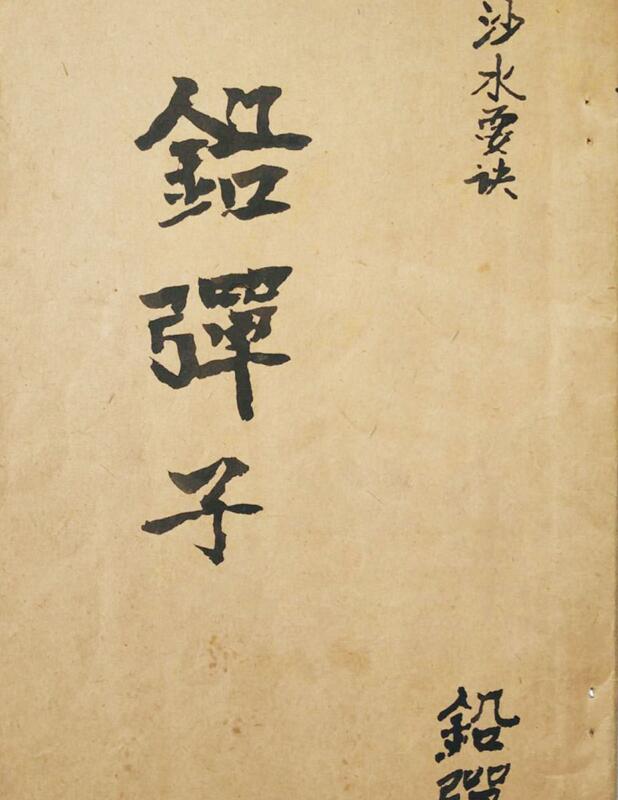 沙水要訣
鉛彈子
鉛彈